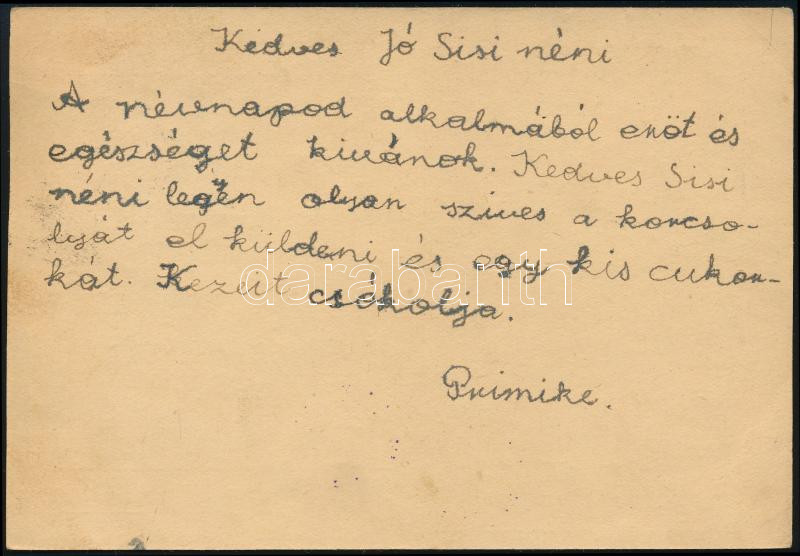 Kedves Jó Sisi néni
A névnapod alkalmából eröt és
egészséget kivánok. Kedves Sisi
néni legyén olyan szives a korcso-
lyát el küldeni és egy kis cukor-
kát. Kezeit csókolja.
Primike.
darabanth